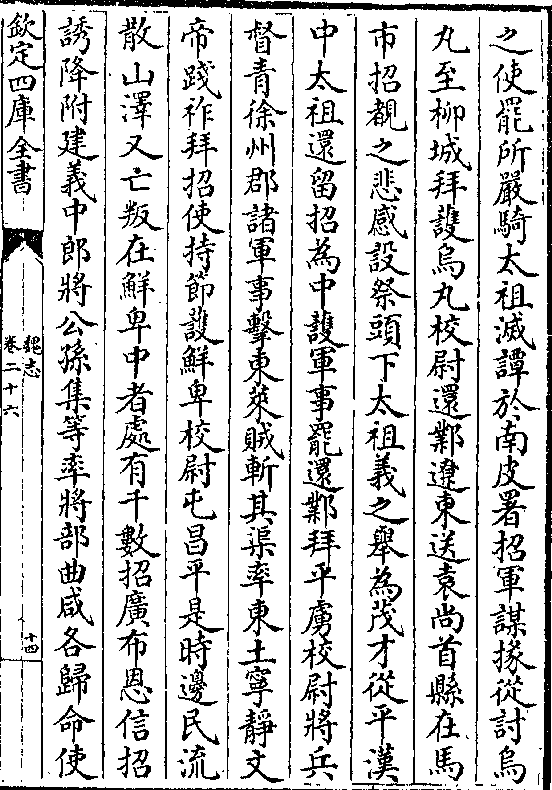 之使罷所嚴騎太祖滅譚於南皮署招軍謀掾從討烏
丸至柳城拜護烏丸校尉還鄴遼東送袁尚首縣在馬
市招覩之悲感設祭頭下太祖義之舉為茂才從平漢
中太祖還留招為中護軍事罷還鄴拜平虜校尉將兵
督青徐州郡諸軍事擊東萊賊斬其渠率東土寧靜文
帝踐祚拜招使持節護鮮卑校尉屯昌平是時邊民流
散山澤又亡叛在鮮卑中者處有千數招廣布恩信招
誘降附建義中郎將公孫集等率將部曲咸各歸命使
欽定四庫全書
魏志
卷二十六
十四